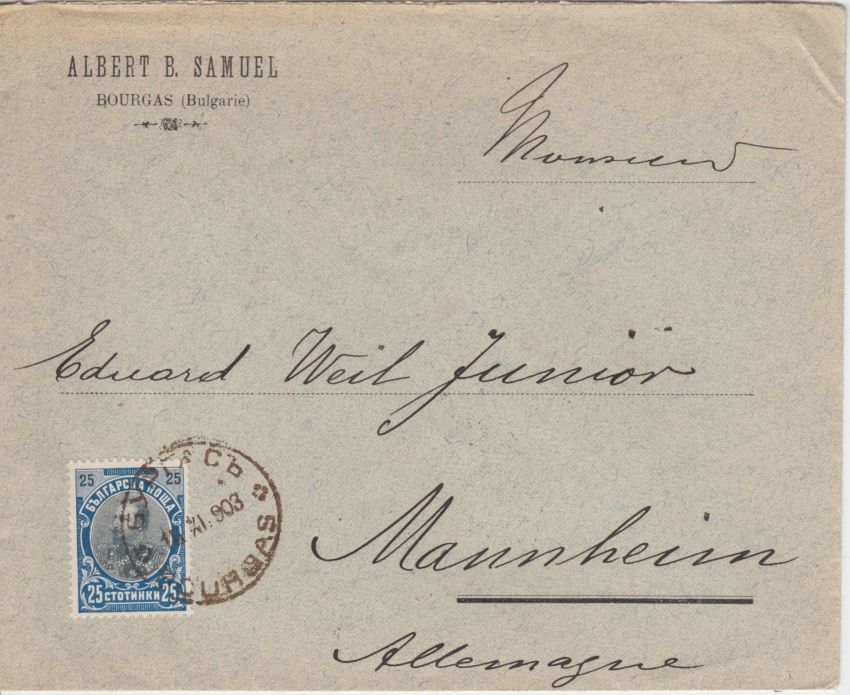 ALBERT B. SAMUEL
BOURGAS (Bulgarie)
Monsieur
Eduard Weil Junior
Mannheim
Allemagne
25 25
БЪЛГАРСКА ПОЩА
25 СТОТИНКИ 25
XI. 903
BOURGAS